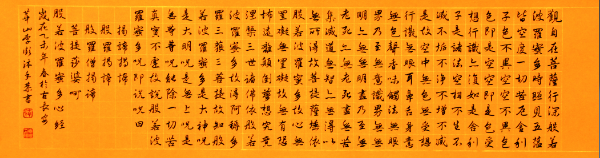 觀自在菩薩行深般若
波羅蜜多時照見五蘊
皆空度一切苦厄舍利
子色不異空空不異色
色即是空空即是色受
想行識亦復如是舍利
子是諸法空相不生不
滅不垢不淨不增不減
是故空中無色無受想
行識無眼耳鼻舌身意
無色聲香味觸法無眼
界乃至無意識界無無
明亦無無明盡乃至無
老死亦無老死盡無苦
集滅道無智亦無得以
無所得故菩提薩埵依
般若波羅蜜多故心無
罣礙無罣礙故無有恐
怖遠離顛倒夢想究竟
涅槃三世諸佛依般若
波羅蜜多故得阿耨多
羅三藐三菩提故知般
若波羅蜜多是大神咒
是大明咒是無上咒是
無等等咒能除一切苦
真實不虛故說般若波
羅蜜多咒即說咒曰
揭諦揭諦
般羅揭諦
般羅僧揭諦
菩提莎婆訶
般若波羅蜜多心經